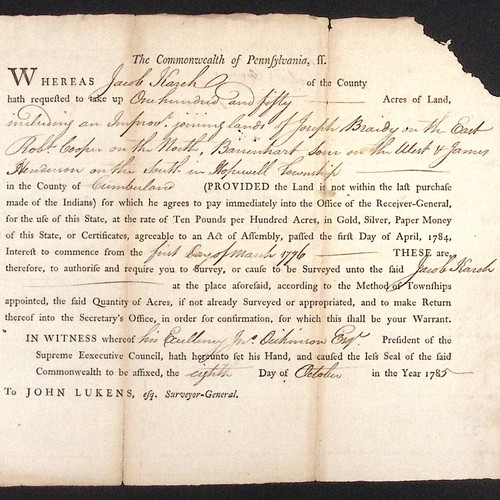 The Commonwealth of Pennsylvania, ss.
WHEREAS Jacob Karch of the County
hath requested to take up One hundred and fifty Acres of Land,
including an Improvt. joining lands of Joseph Braidy on the East
Robt. Cooper on the North, Barrenhart Sour on the West & James
Henderson on the South in Hopewell Township
in the County of Cumberland (PROVIDED the Land is not within the last purchase
made of the Indians) for which he agrees to pay immediately into the Office of the Receiver-General,
for the use of this State, at the rate of Ten Pounds per Hundred Acres, in Gold, Silver, Paper Money
of this State, or Certificates, agreeable to an Act of Assembly, passed the first Day of April, 1784,
Interest to commence from the first Day of March 1776 THESE are,
therefore, to authorise and require you to Survey, or cause to be Surveyed unto the said Jacob Karch
at the place aforesaid, according to the Method of Townships
appointed, the said Quantity of Acres, if not already Surveyed or appropriated, and to make Return
thereof into the Secretary's Office, in order for confirmation, for which this shall be your Warrant.
IN WITNESS whereof his Excellency Jno. Dickinson Esqr. President of the
Supreme Eexecutive Council, hath hereunto set his Hand, and caused the less Seal of the said
Commonwealth to be affixed, the eighth Day of October in the Year 1785
To JOHN LUKENS, esq. Surveyor-General.